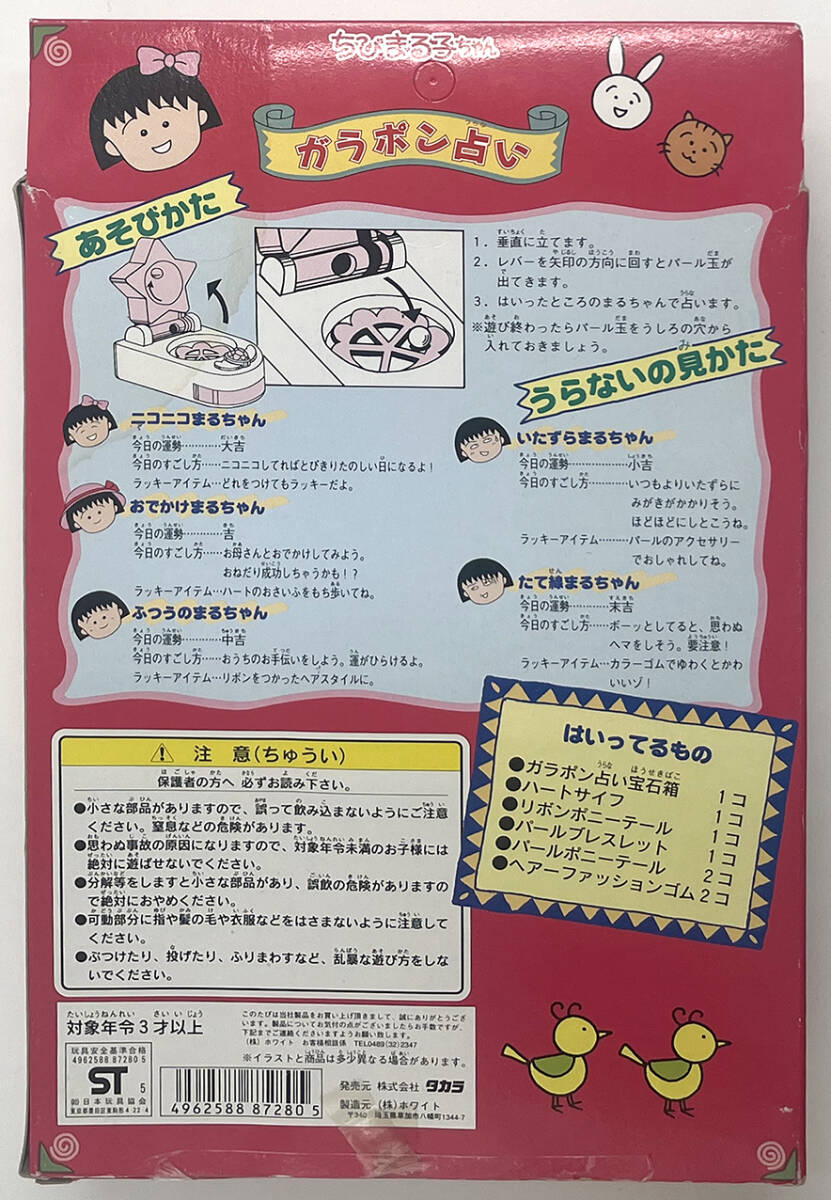 ちびまる子ちゃん
ガラポン占い
あそびかた
1. 垂直に立てます。
2. レバーを矢印の方向に回すとパール玉が
出てきます。
3. はいったところのまるちゃんで占います。
※遊び終わったらパール玉をうしろの穴から
入れておきましょう。
うらないの見かた
ニコニコまるちゃん
今日の運勢…………大吉
今日のすごし方……ニコニコしてればとびきりたのしい日になるよ！
ラッキーアイテム…どれをつけてもラッキーだよ。
おでかけまるちゃん
今日の運勢…………吉
今日のすごし方……お母さんとおでかけしてみよう。
おねだり成功しちゃうかも！？
ラッキーアイテム…ハートのおさいふをもち歩いてね。
ふつうのまるちゃん
今日の運勢…………中吉
今日のすごし方……おうちのお手伝いをしよう。運がひらけるよ。
ラッキーアイテム…リボンをつかったヘアスタイルに。
いたずらまるちゃん
今日の運勢…………小吉
今日のすごし方……いつもよりいたずらに
みがきがかかりそう。
ほどほどにしとこうね。
ラッキーアイテム………パールのアクセサリー
でおしゃれしてね。
たて線まるちゃん
今日の運勢…………末吉
今日のすごし方……ボーッとしてると、思わぬ
ヘマをしそう。要注意！
ラッキーアイテム…カラーゴムでゆわくとかわ
いいゾ！
はいってるもの
●ガラポン占い宝石箱 1コ
●ハートサイフ 1コ
●リボンポニーテール 1コ
●パールブレスレット 1コ
●パールポニーテール 2コ
●ヘアーファッションゴム 2コ
⚠ 注 意(ちゅうい)
保護者の方へ 必ずお読み下さい。
●小さな部品がありますので、誤って飲み込まないようにご注意
ください。窒息などの危険があります。
●思わぬ事故の原因になりますので、対象年令未満のお子様には
絶対に遊ばせないでください。
●分解等をしますと小さな部品があり、誤飲の危険がありますの
で絶対におやめください。
●可動部分に指や髪の毛や衣服などをはさまないように注意して
ください。
●ぶつけたり、投げたり、ふりまわすなど、乱暴な遊び方をしな
いでください。
対象年令3才以上
このたびは当社製品をお買い上げ頂きまして、誠にありがとうござ
います。製品についてお気付の点がございましたらお手数ですが、
下記までご連絡くださいますようお願い致します。
(株) ホワイト お客様相談係 TEL0489(32)2347
※イラストと商品は多少異なる場合があります。
玩具安全基準合格
4962588 87280 5
ST 5
㈳日本玩具協会
東京都墨田区東駒形4-22-4
4 962588 872805
発売元 株式会社 タカラ
製造元 (株)ホワイト
〒340 埼玉県草加市八幡町1344-7